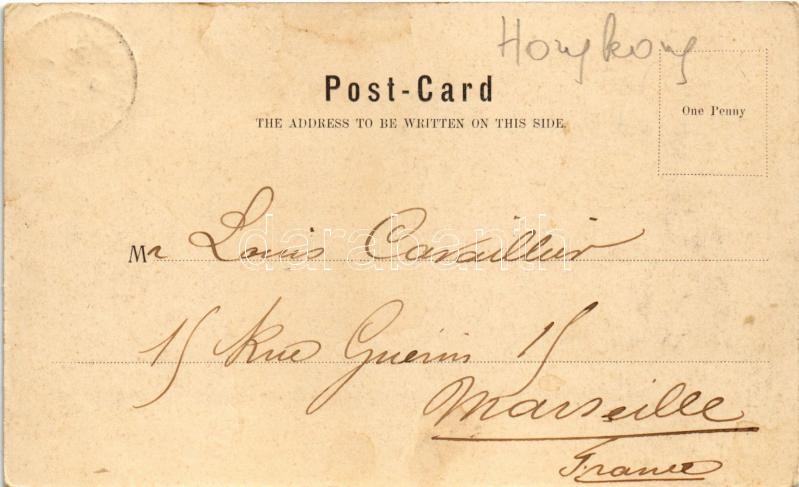 Hongkong
Post-Card
THE ADDRESS TO BE WRITTEN ON THIS SIDE.
One Penny
Mr Louis Cavaillier
darabanth
15 Rue Guérin 15
Marseille
France